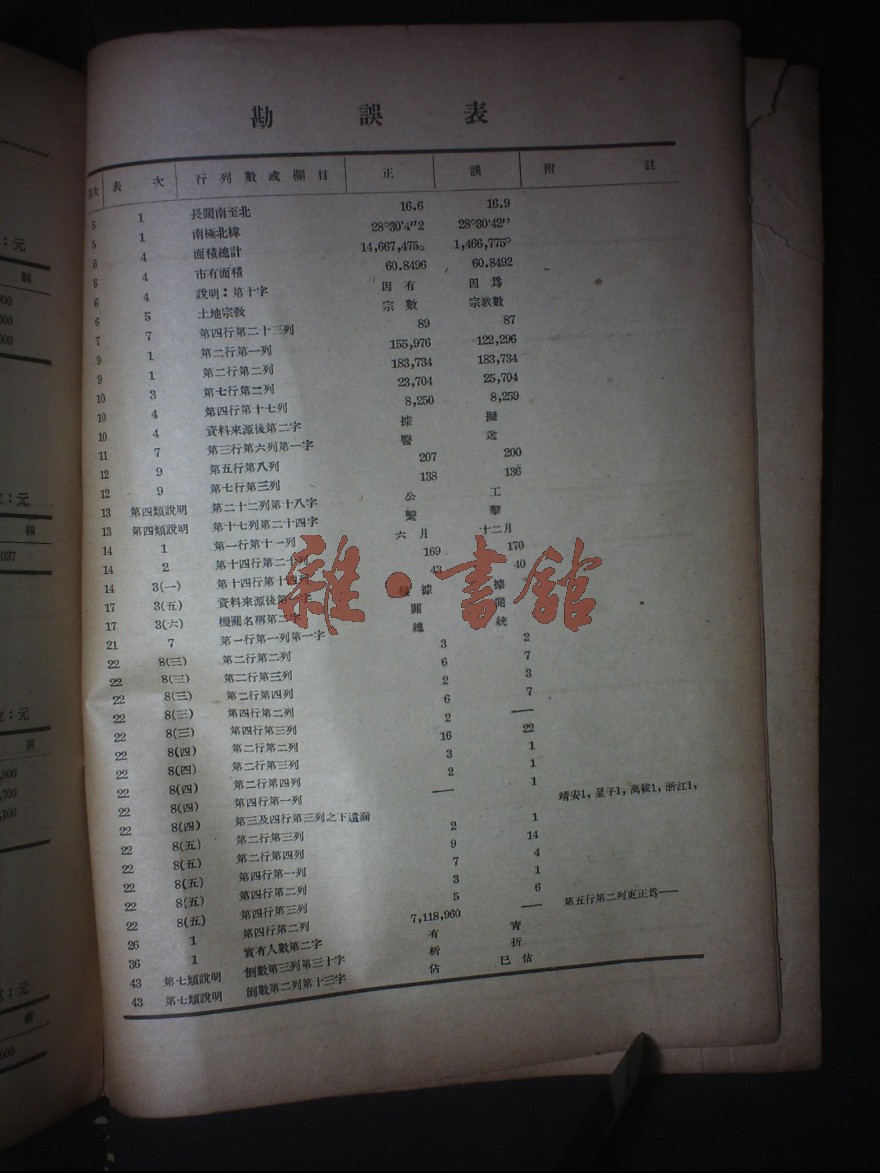 勘誤表
頁次 表次 行列數或欄目 正 誤 附註
5 1 長闊南至北 16.6 16.9
5 1 南極北緯 28°30'4"2 28°30'42"
6 4 面積總計 14,667,475。 1,466,775°
6 4 市有面積 60.8496 60.8492
6 4 說明：第十字 因有 因爲
6 5 土地宗敎 宗數 宗敎數
7 7 第四行第二十三列 89 87
9 1 第二行第一列 155,976 122,296
9 1 第二行第二列 183,734 183,734
10 3 第七行第二列 23,704 25,704
10 4 第四行第十七列 8,250 8,259
10 4 資料來源後第二字 據 擬
11 7 第三行第六列第一字 醫
12 9 第五行第八列 207 200
12 9 第七行第三列 138 136
13 第四類說明 第二十二列第十八字 公 工
13 第四類說明 第十七列第二十四字 繫 擊
14 1 第一行第十一列 六月 十二月
14 2 第十四行第二十列 169 170
14 3(一) 第十四行第十四列 43 40
17 3(五) 資料來源後第一字 據
17 3(六) 機關名稱第二字 關
21 7 第一行第一列第一字 總 統
22 8(三) 第二行第二列 3 2
22 8(三) 第二行第三列 6 7
22 8(三) 第二行第四列 2 3
22 8(三) 第四行第二列 6 7
22 8(三) 第四行第三列 2 —
22 8(四) 第二行第二列 16 22
22 8(四) 第二行第三列 3 1
22 8(四) 第二行第四列 2 1
22 8(四) 第四行第一列 — 1
22 8(四) 第三及四行第三列之下遺漏 靖安1，星子1，萬載1，浙江1，
22 8(五) 第二行第三列 2 1
22 8(五) 第二行第四列 9 14
22 8(五) 第四行第一列 7 4
22 8(五) 第四行第二列 3 1
22 8(五) 第四行第三列 5 6
26 1 第四行第二列 7,118,960 — 第五行第二列更正爲——
36 1 實有人數第二字 有
43 第七類說明 倒數第三列第三十字 析 折
43 第七類說明 倒數第二列第十三字 佔 已佔
雜·書館
：元
額
000
000
000
：元
額
037
：元
額
,900
,700
,100
：元
額
000